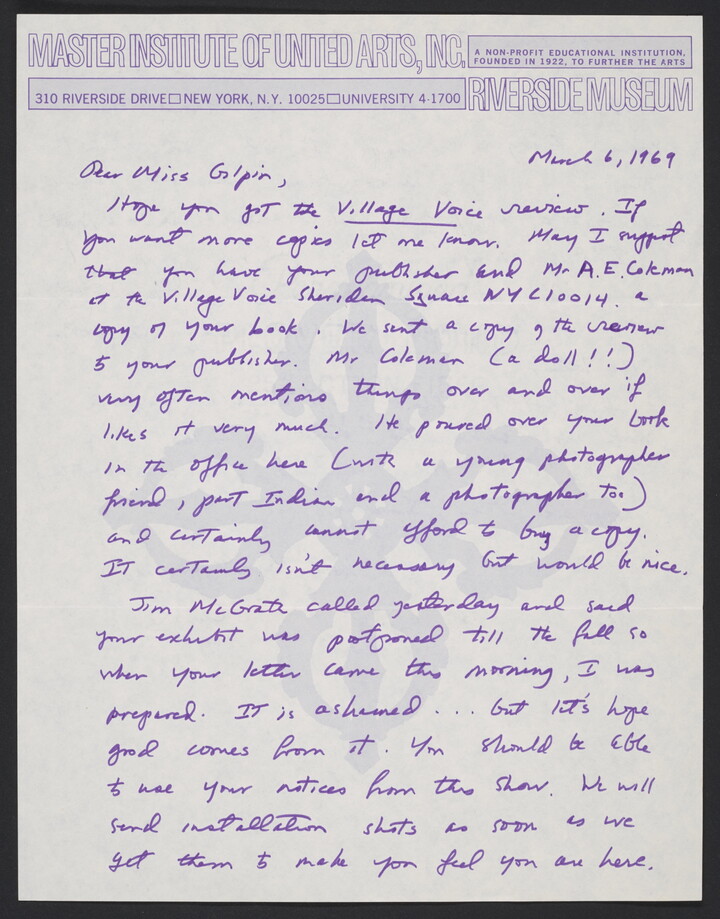 MASTER INSTITUTE OF UNITED ARTS, INC.
A NON-PROFIT EDUCATIONAL INSTITUTION,
FOUNDED IN 1922, TO FURTHER THE ARTS
310 RIVERSIDE DRIVE□NEW YORK, N.Y. 10025□UNIVERSITY 4-1700
RIVERSIDE MUSEUM
March 6, 1969
Dear Miss Gilpin,
Hope you got the Village Voice review. If
you want more copies let me know. May I suggest
that you have your publisher send Mr A.E. Coleman
at the Village Voice Sheridan Square NYC 10014 a
copy of your book. We sent a copy of the review
to your publisher. Mr Coleman (a doll!!)
very often mentions things over and over if
likes it very much. He poured over your book
in the office here (with a young photographer
friend, part Indian and a photographer too)
and certainly cannot afford to buy a copy.
It certainly isn't necessary but would be nice.
Jim McGrath called yesterday and said
your exhibit was postponed till the fall so
when your letter came this morning, I was
prepared. It is ashamed . . . but let's hope
good comes from it. You should be able
to use your notices from this show. We will
send installation shots as soon as we
get them to make you feel you are here.